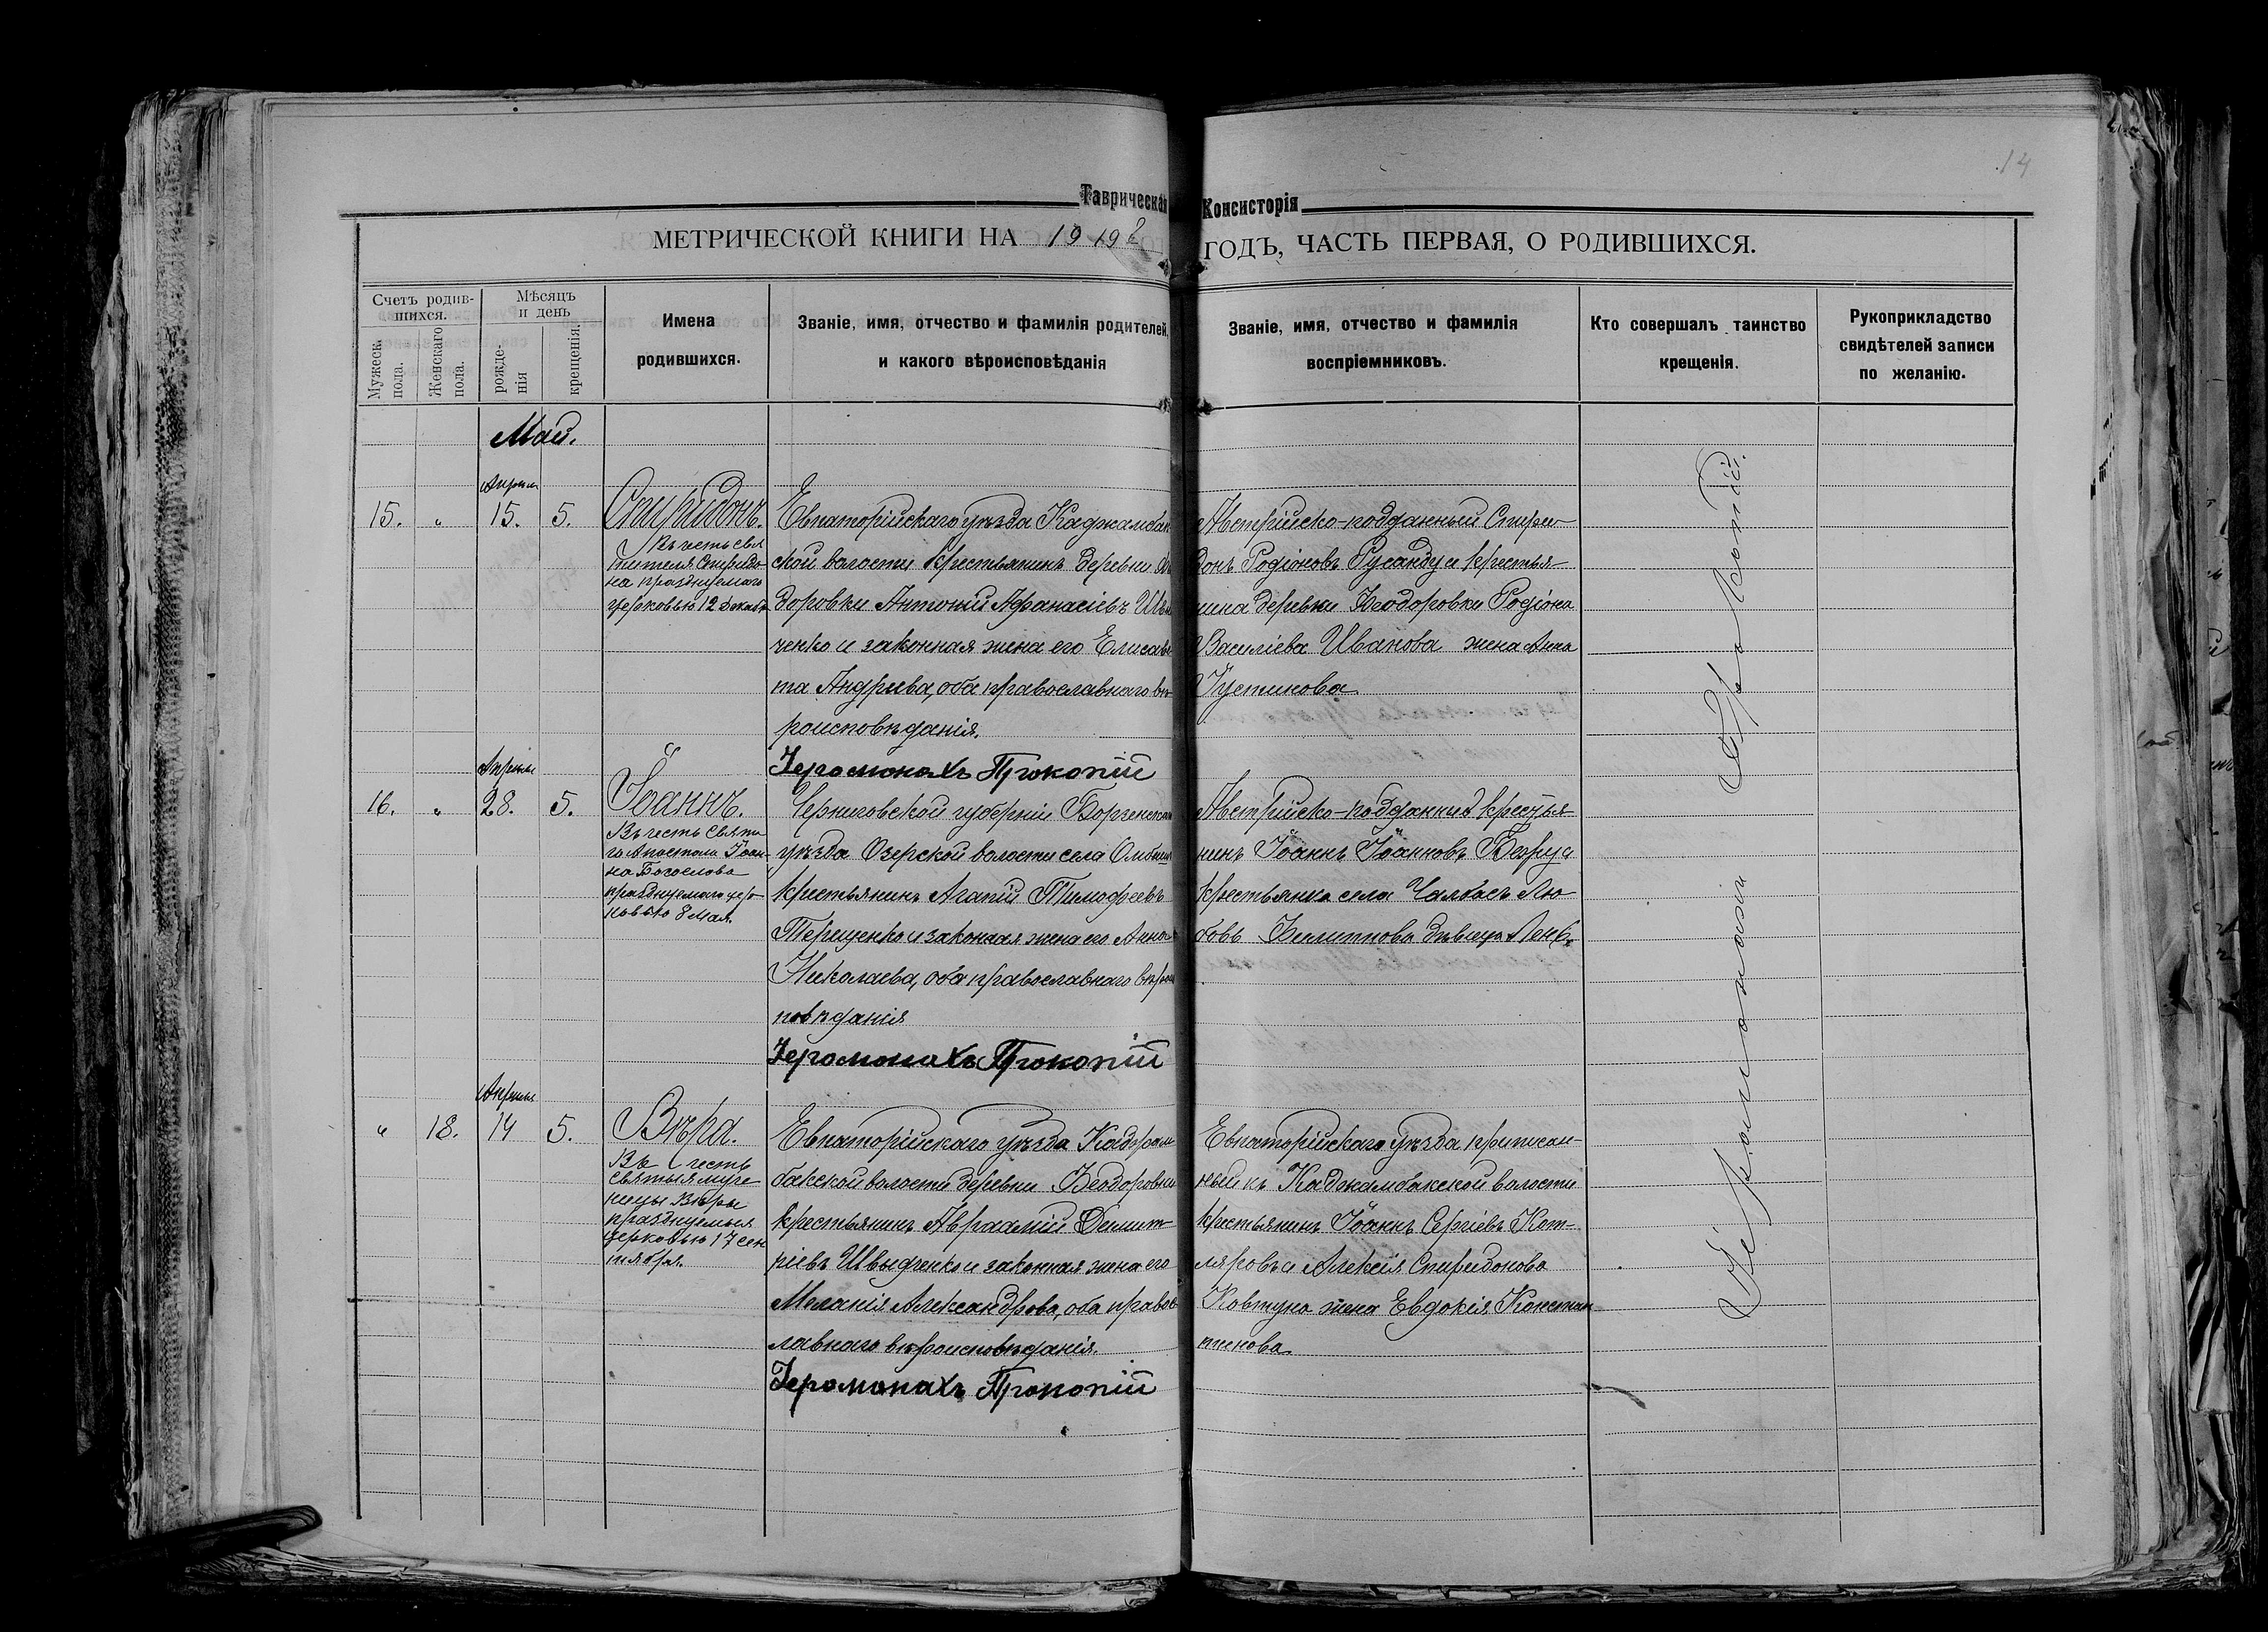 14
Таврическая Консисторія
МЕТРИЧЕСКОЙ КНИГИ НА 1919 ГОДЪ, ЧАСТЬ ПЕРВАЯ, О РОДИВШИХСЯ.
Счетъ родив-
шихся.
Мужеск. пола.
Женскаго пола.
Мѣсяцъ
и день
рожде-
нія
крещенія.
Имена
родившихся.
Званіе, имя, отчество и фамилія родителей,
и какого вѣроисповѣданія
Званіе, имя, отчество и фамилія
воспріемниковъ.
Кто совершалъ таинство
крещенія.
Рукоприкладство
свидѣтелей записи
по желанію.
Май.
Апрѣля
15. " 15. 5. Спиридонъ.
Въ честь свя
тителя Спиридо-
на празднуемаго
церковью 12 декаб.
Евпаторійскаго уѣзда Каджамбак
ской волости крестьянинъ деревни Ѳе
доровки Антоній Афанасіевъ
ченко и законная жена его Елисаве
та Андреева, оба православнаго вѣ
роисповѣданія.
Іеромонахъ Прокопій
Австрійско-подданный Спири-
донъ Родіоновъ Русанду и крестья-
нина деревни Ѳеодоровки Родіона
Василіева Иванова жена Анна
Іустинова
Апрѣля
16. " 28. 5. Іоаннъ.
Въ честь Свята
го Апостола Іоан-
на Богослова
празднуемаго цер-
ковью 8 мая.
Черниговской губерніи Борзенскаго
уѣзда Озерской волости села Омбиш
крестьянинъ Агапій Тимофеевъ
Терещенко и законная жена его Анна
Николаева, оба православнаго вѣрои
повѣданія
Іеромонахъ Прокопій
Австрійско-подданный крестья-
нинъ Іоаннъ Іоанновъ и
крестьянка села Чалбасъ Лю-
бовь Филиппова дѣвица
Апрѣля
" 18. 14 5. Вѣра.
Въ честь
святыя муче
ницы Вѣры
празднуемыя
церковью 17 сен
тября.
Евпаторійскаго уѣзда Каджам
бакской волости деревни Ѳеодоровки
крестьянинъ Авраамій Димит-
ріевъ Швыдченко и законная жена его
Меланія Александрова, оба правос
лавнаго вѣроисповѣданія.
Іеромонахъ Прокопій
Евпаторійскаго уѣзда приписан-
ный къ Каджамбакской волости
крестьянинъ Іоаннъ Сергіевъ Кот-
ляровъ и Алексія Спиридонова
Ковтуна жена Евдокія Констан
тинова
Іеромонахъ Прокопій.